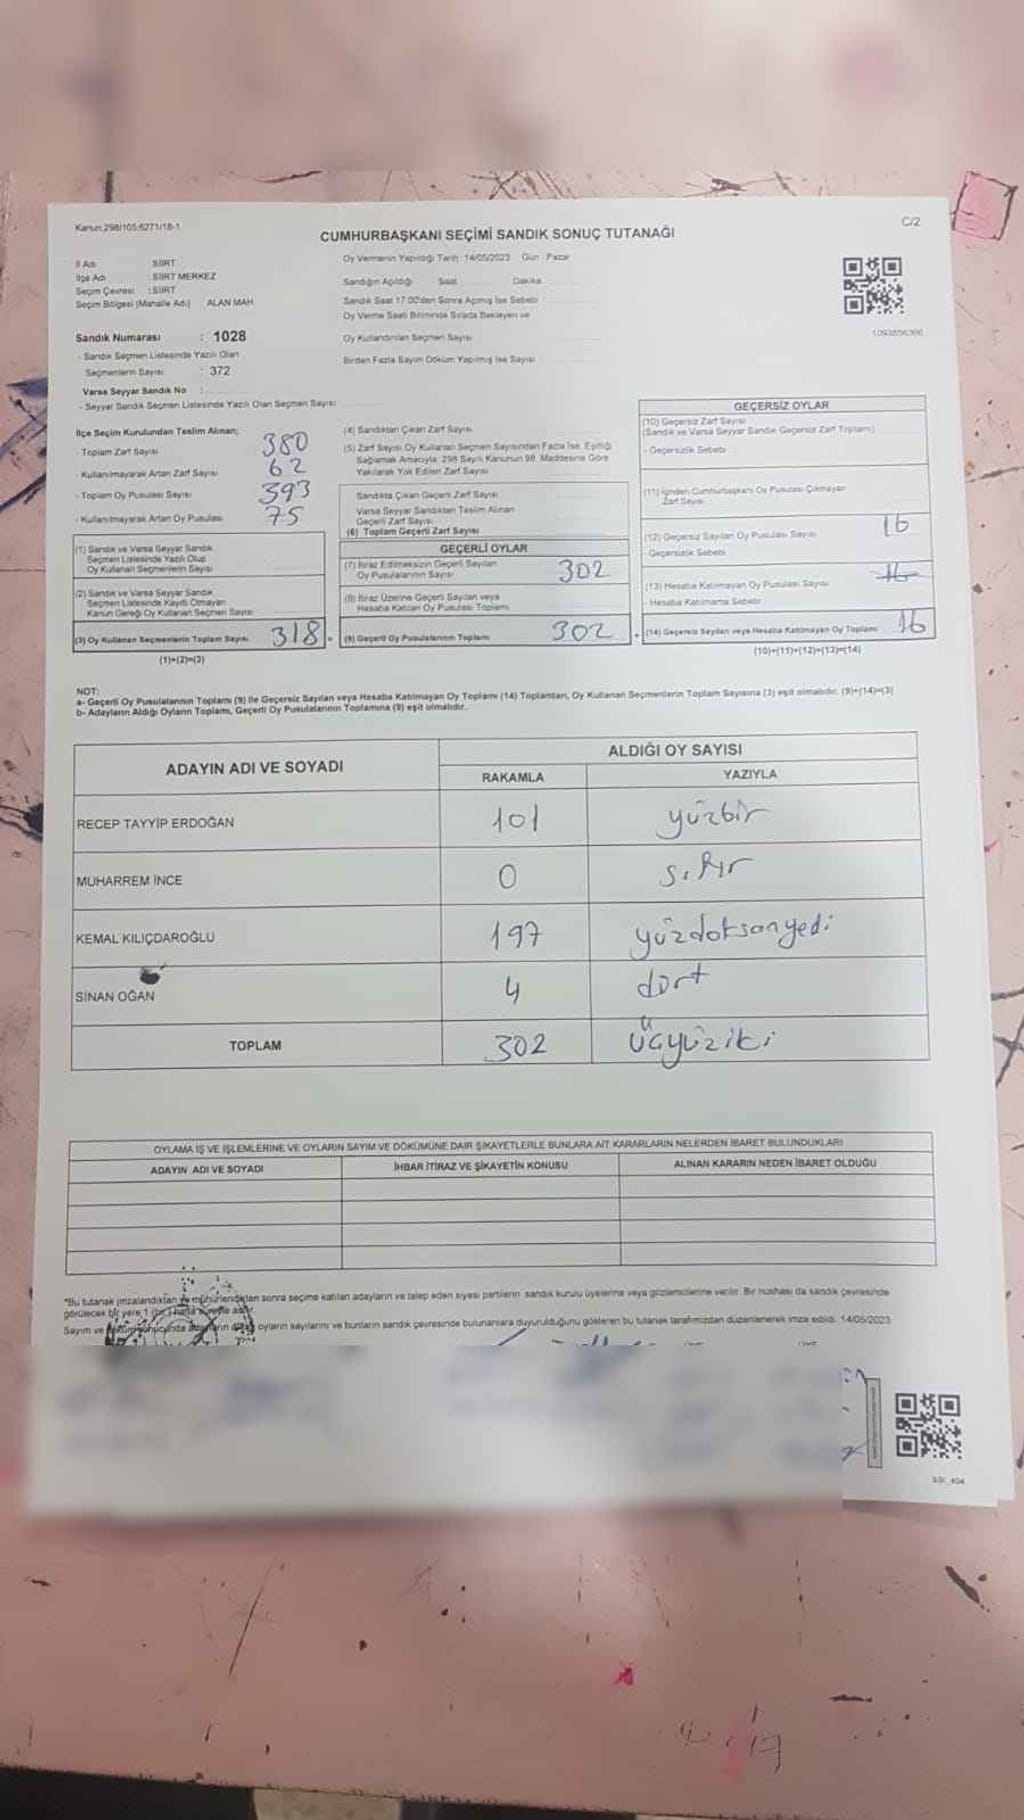 Kanun:298/105;6271/18-1
C/2
CUMHURBAŞKANI SEÇİMİ SANDIK SONUÇ TUTANAĞI
İl Adı : SİİRT
İlçe Adı : SİİRT MERKEZ
Seçim Çevresi : SİİRT
Seçim Bölgesi (Mahalle Adı) ALAN MAH.
Sandık Numarası : 1028
- Sandık Seçmen Listesinde Yazılı Olan
Seçmenlerin Sayısı : 372
Varsa Seyyar Sandık No :
- Seyyar Sandık Seçmen Listesinde Yazılı Olan Seçmen Sayısı:
Oy Vermenin Yapıldığı Tarih : 14/05/2023 Gün : Pazar
Sandığın Açıldığı Saat Dakika
Sandık Saat 17.00'den Sonra Açılmış İse Sebebi
Oy Verme Saati Bitiminde Sırada Bekleyen ve
Oy Kullandırılan Seçmen Sayısı
Birden Fazla Sayım Döküm Yapılmış İse Sayısı
1093856366
İlçe Seçim Kurulundan Teslim Alınan;
- Toplam Zarf Sayısı 380
- Kullanılmayarak Artan Zarf Sayısı 62
- Toplam Oy Pusulası Sayısı 393
- Kullanılmayarak Artan Oy Pusulası 75
(1) Sandık ve Varsa Seyyar Sandık
Seçmen Listesinde Yazılı Olup
Oy Kullanan Seçmenlerin Sayısı
(2) Sandık ve Varsa Seyyar Sandık
Seçmen Listesinde Kayıtlı Olmayan
Kanun Gereği Oy Kullanan Seçmen Sayısı
(3) Oy Kullanan Seçmenlerin Toplam Sayısı 318
(1)+(2)=(3)
(4) Sandıktan Çıkan Zarf Sayısı
(5) Zarf Sayısı Oy Kullanan Seçmen Sayısından Fazla İse, Eşitliği
Sağlamak Amacıyla, 298 Sayılı Kanunun 98. Maddesine Göre
Yakılarak Yok Edilen Zarf Sayısı
Sandıkta Çıkan Geçerli Zarf Sayısı
Varsa Seyyar Sandıktan Teslim Alınan
Geçerli Zarf Sayısı
(6) Toplam Geçerli Zarf Sayısı
GEÇERLİ OYLAR
(7) İtiraz Edilmeksizin Geçerli Sayılan
Oy Pusulalarının Sayısı 302
(8) İtiraz Üzerine Geçerli Sayılan veya
Hesaba Katılan Oy Pusulası Toplamı
(9) Geçerli Oy Pusulalarının Toplamı 302
GEÇERSİZ OYLAR
(10) Geçersiz Zarf Sayısı
(Sandık ve Varsa Seyyar Sandık Geçersiz Zarf Toplamı)
- Geçersizlik Sebebi
(11) İçinden Cumhurbaşkanı Oy Pusulası Çıkmayan
Zarf Sayısı
(12) Geçersiz Sayılan Oy Pusulası Sayısı 16
- Geçersizlik Sebebi
(13) Hesaba Katılmayan Oy Pusulası Sayısı 16
- Hesaba Katılmama Sebebi
(14) Geçersiz Sayılan veya Hesaba Katılmayan Oy Toplamı 16
(10)+(11)+(12)+(13)=(14)
NOT:
a- Geçerli Oy Pusulalarının Toplamı (9) ile Geçersiz Sayılan veya Hesaba Katılmayan Oy Toplamı (14) Toplamları, Oy Kullanan Seçmenlerin Toplam Sayısına (3) eşit olmalıdır. (9)+(14)=(3)
b- Adayların Aldığı Oyların Toplamı, Geçerli Oy Pusulalarının Toplamına (9) eşit olmalıdır.
ADAYIN ADI VE SOYADI
ALDIĞI OY SAYISI
RAKAMLA YAZIYLA
RECEP TAYYİP ERDOĞAN 101 yüzbir
MUHARREM İNCE 0 sıfır
KEMAL KILIÇDAROĞLU 197 yüzdoksanyedi
SİNAN OĞAN 4 dört
TOPLAM 302 üçyüziki
OYLAMA İŞ VE İŞLEMLERİNE VE OYLARIN SAYIM VE DÖKÜMÜNE DAİR ŞİKAYETLERLE BUNLARA AİT KARARLARIN NELERDEN İBARET BULUNDUKLARI
ADAYIN ADI VE SOYADI İHBAR İTİRAZ VE ŞİKAYETİN KONUSU ALINAN KARARIN NEDEN İBARET OLDUĞU
*Bu tutanak imzalandıktan ve mühürlendikten sonra seçime katılan adayların ve talep eden siyasi partilerin sandık kurulu üyelerine veya gözlemcilerine verilir. Bir nüshası da sandık çevresinde
görülecek bir yere 1 (bir) hafta süreyle asılır.
Sayım ve döküm sonucunda adayların aldığı oyların sayılarını ve bunların sandık çevresinde bulunanlara duyurulduğunu gösteren bu tutanak tarafımızdan düzenlenerek imza edildi. 14/05/2023